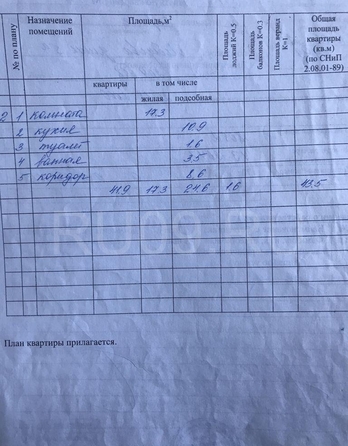 № по плану
Назначение помещений
Площадь,м²
Площадь лоджий К=0.5
Площадь балконов К=0.3
Площадь веранд К=1.
Общая площадь квартиры (кв.м) (по СНиП 2.08.01-89)
квартиры
в том числе
жилая
подсобная
2 1 комната 17.3
2 кухня 10.9
3 туалет 1.6
4 ванная 3.5
5 коридор 8.6
41.9 17.3 24.6 1.6 43.5
План квартиры прилагается.